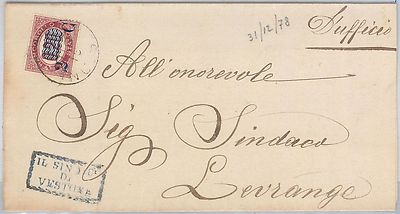 31/12/78
D'ufficio
All'onorevole
Sig Sindaco
Levrange
IL SIN
DI
VESTONE